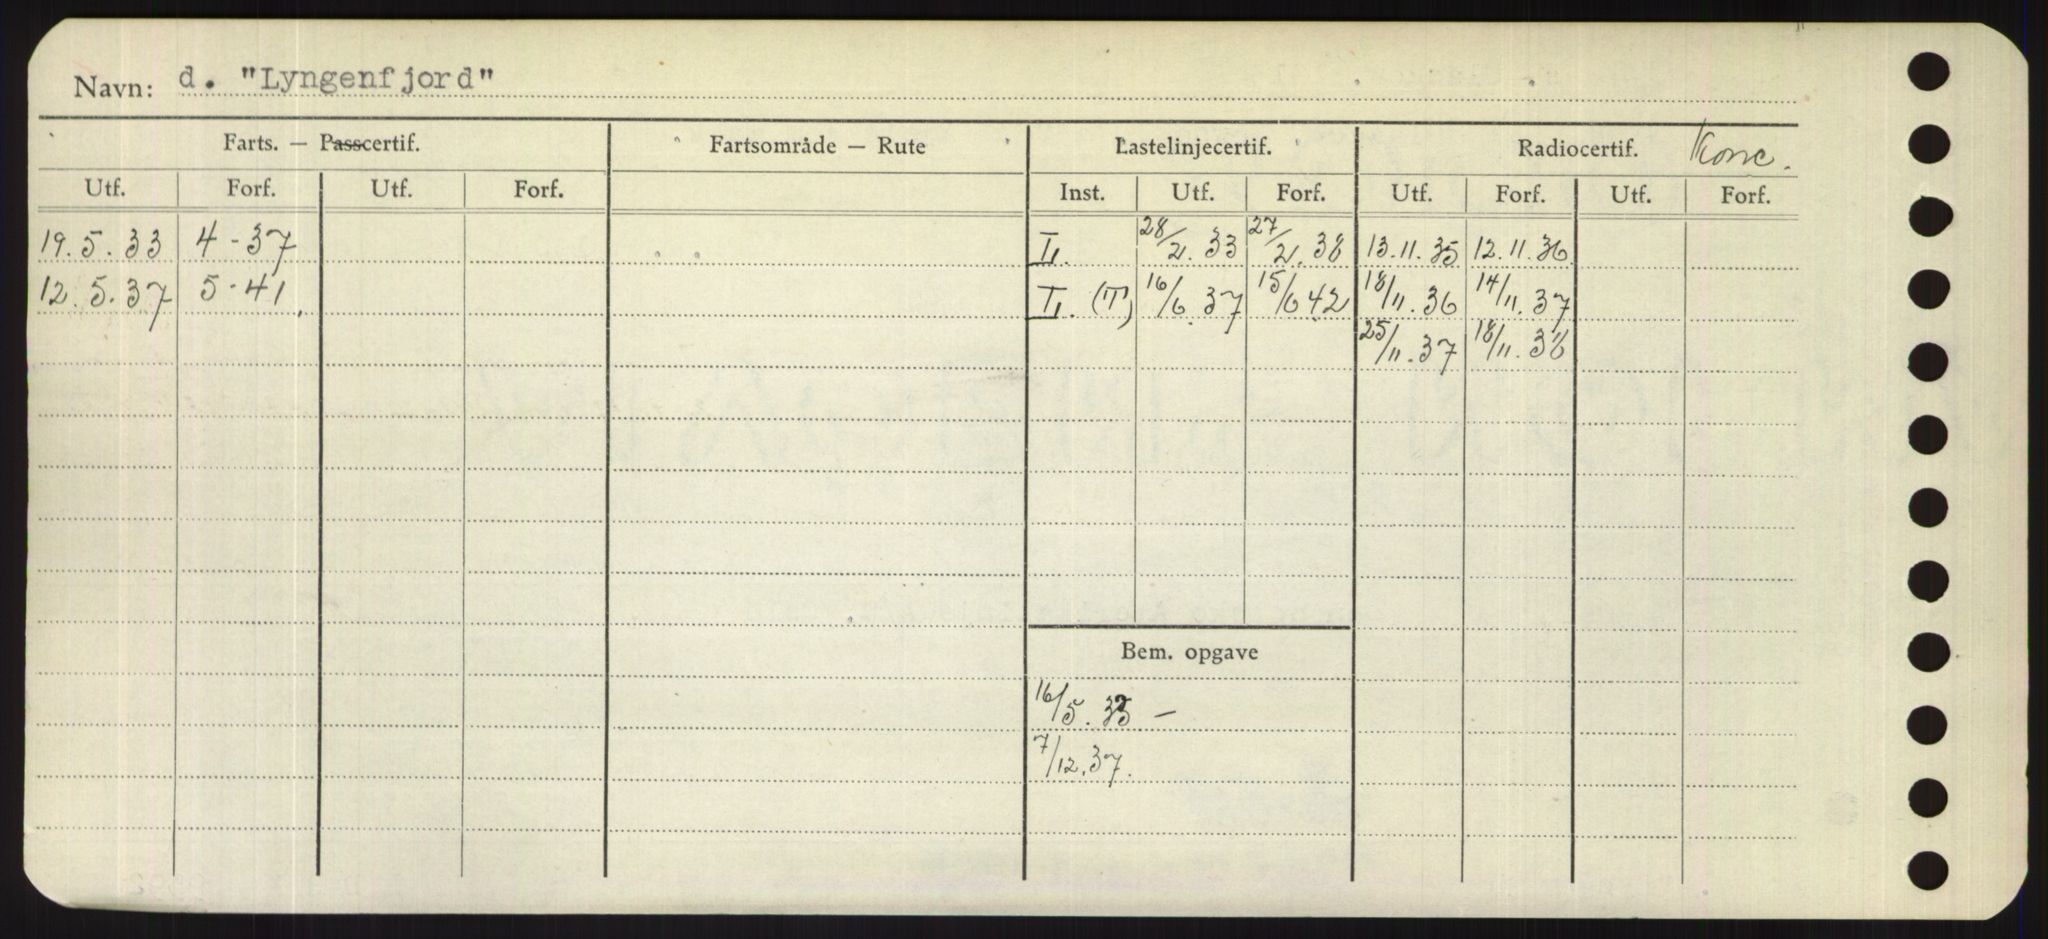 Navn: d. "Lyngenfjord"
Farts. — Passcertif. Fartsområde — Rute Lastelinjecertif. Radiocertif. Konc.
Utf. Forf. Utf. Forf. Inst. Utf. Forf. Utf. Forf. Utf. Forf.
19.5.33 4-37 L. 28/2.33 27/2.38 13.11.35 12.11.36
12.5.37 5-41 L. (T) 16/6.37 15/6 42 18/11.36 14/11.37
25/11.37 18/11.38
Bem. opgave
16/5.33 —
7/12.37.